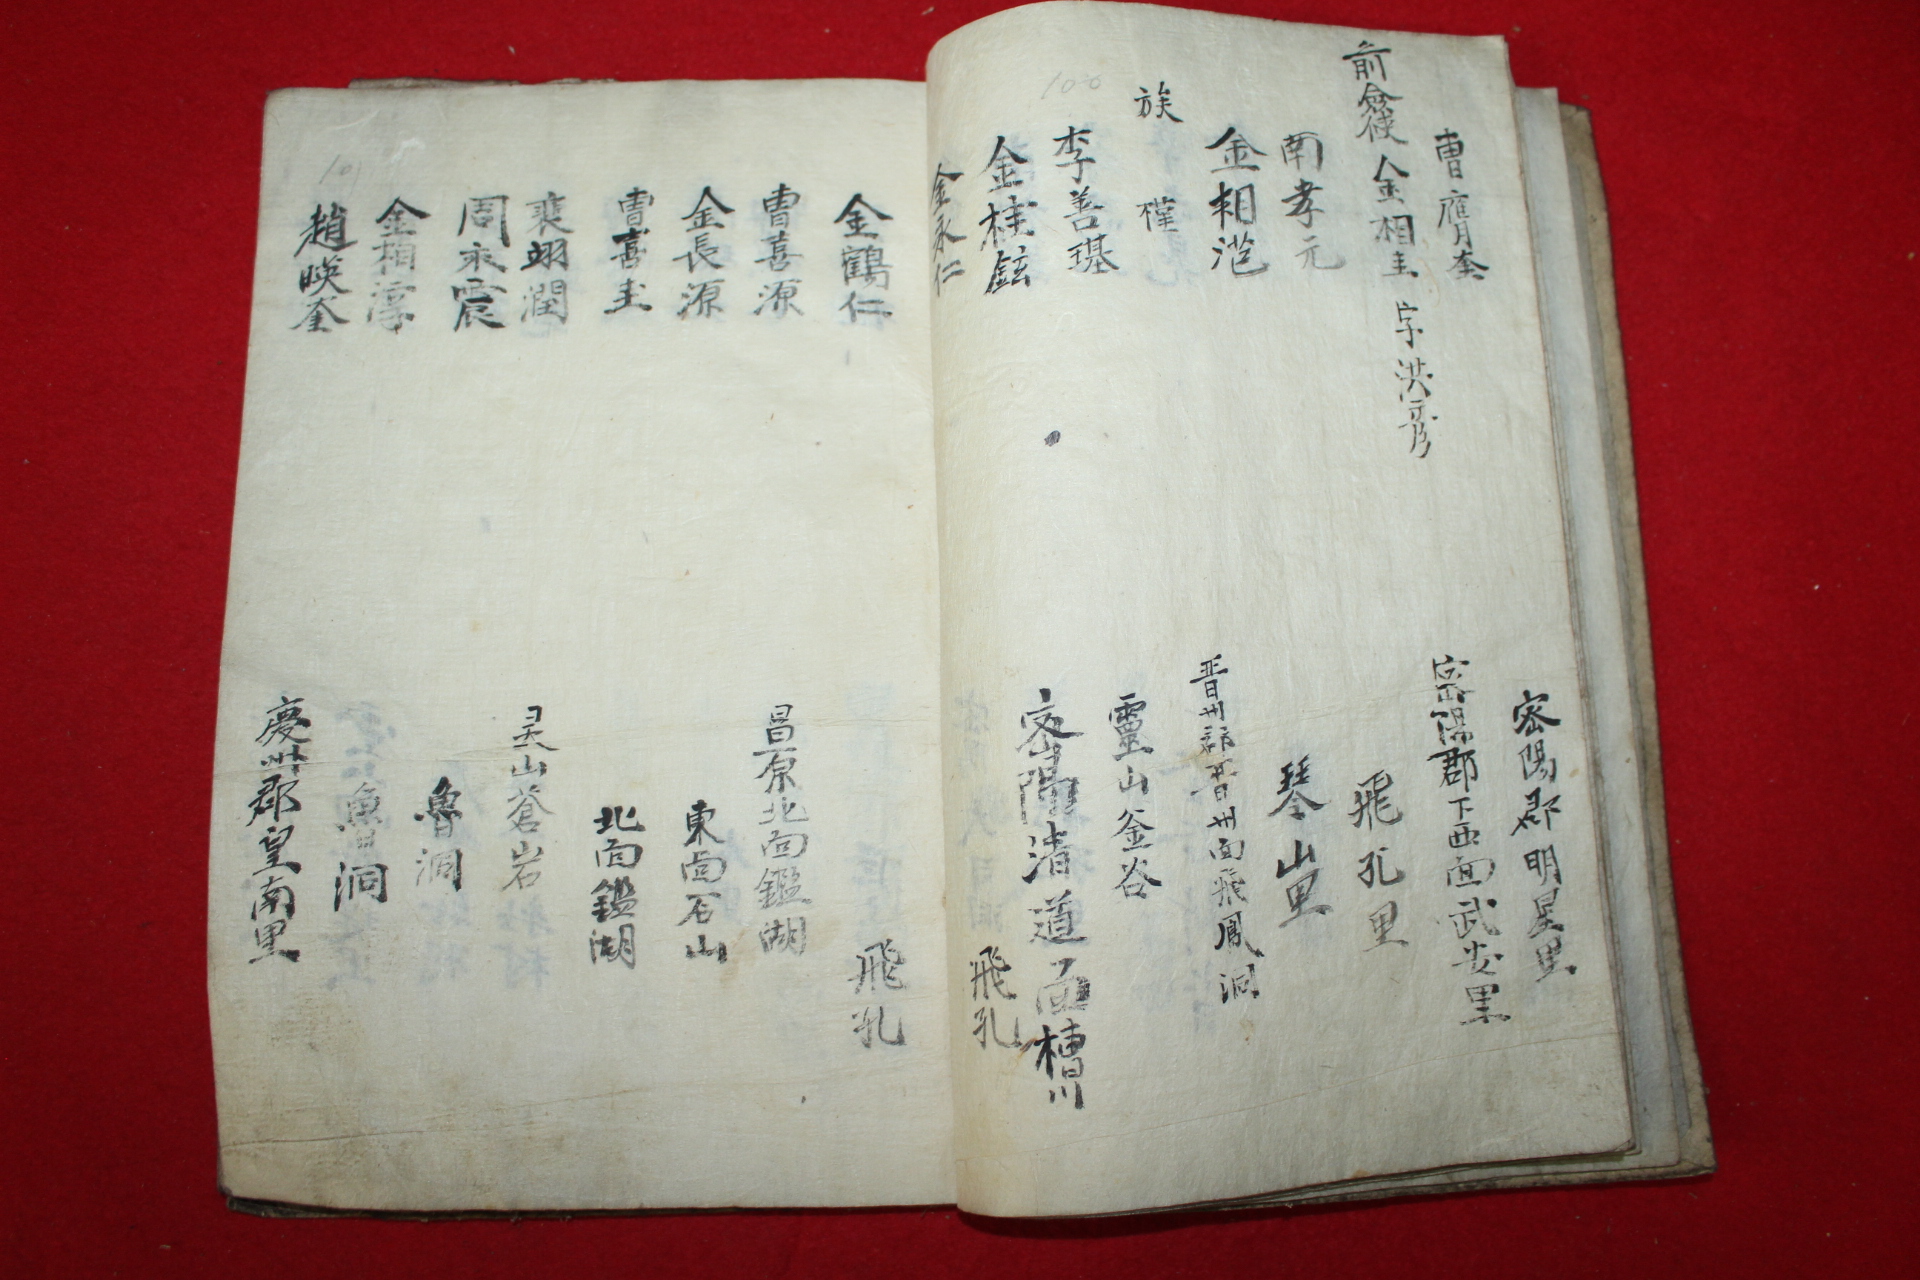 曺膺奎 密陽郡明星里
前僉使 金相圭 字洪彦 密陽郡下西面武安里
南孝元 飛孔里
金相 琴山里
族 槿 晋州郡晋州面飛鳳洞
李善璂 靈山釜谷
金桂鉉 密陽清道面槽川
金永仁 飛孔
金鶴仁 飛孔
曺喜源 昌原北面鑑湖
金長源 東面石山
曺喜圭 北面鑑湖
裵翊潤 灵山蒼岩
周永震 魯洞
金相淳 魯洞
趙暎奎 慶州郡皇南里
100
101